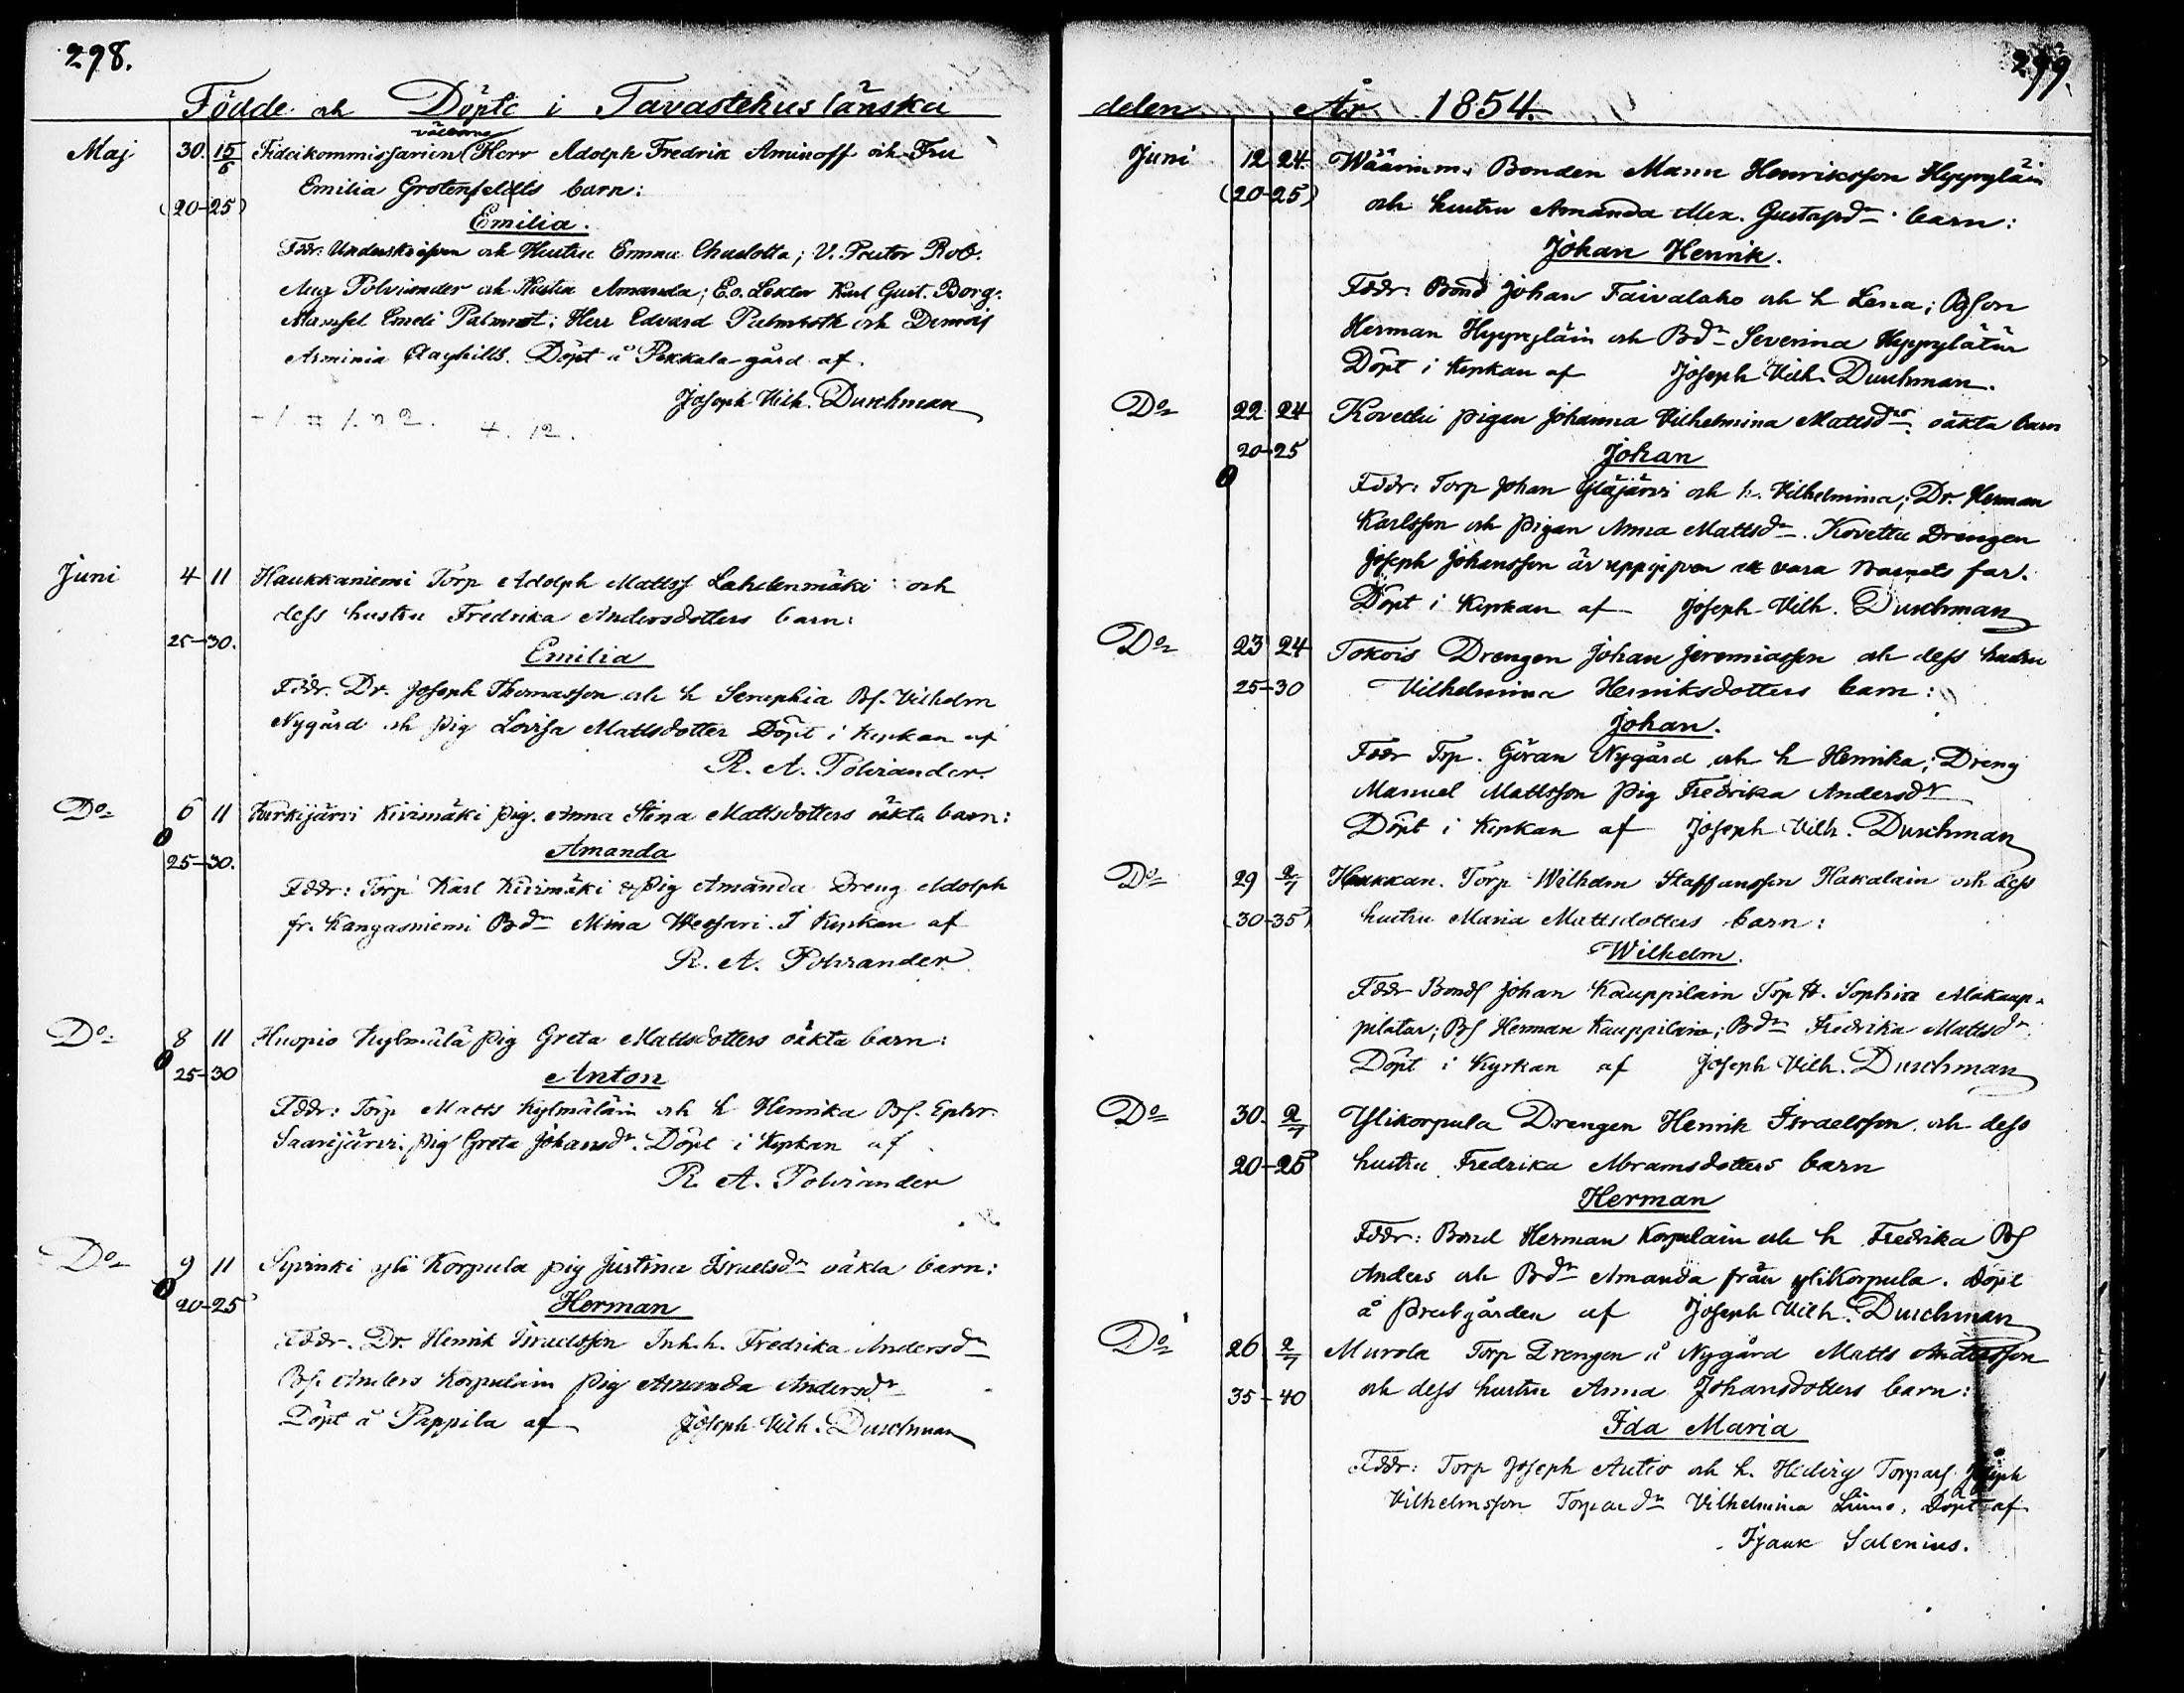 298.
Födde och Döpte i Tavastehus länska
Maj 30. 15/6 Fideikommissarien välborne Herr Adolph Fredrik Aminoff och Fru
Emilia Grotenfeldts barn:
(20-25)
Emilia.
Fddr: Underskrifven och Hustru Emma Charlotta; V. Pastor Rob.
Aug Polviander och Hustru Amanda; E.o. Lektor Karl Gust. Borg.
Mamsel Emeli Palmrot; Herr Edvard Palmroth och Demois
Arminia Clayhills. Döpt å Pekkala gård af
Joseph Vilh. Duschman
Juni 4 11 Haukkaniemi Torp Adolph Mattss Lahdenmäki och
dess hustru Fredrika Andersdotters barn:
25-30.
Emilia
Fddr. Dr. Joseph Thomasson och h Seraphia Bs. Vilhelm
Nygård och Pig Lovisa Mattsdotter Döpt i Kyrkan af
R. A. Polviander.
Do 6 11 Kurkijärvi Kivimäki Pig. Anna Stina Mattsdotters oäkta barn:
25-30.
Amanda
Fddr: Torp Karl Kivimäki & Pig Amanda Dreng Adolph
fr. Kangasniemi Bdr Mina Wessari. I Kyrkan af
R. A. Polviander
Do 8 11 Huopio Kylmälä Pig Greta Mattsdotters oäkta barn:
25-30
Anton
Fddr: Torp Matts Kylmäläin och h Henrika Bs. Ephr.
Saarijärvi. Pig Greta Johansdr. Döpt i Kyrkan af
R. A. Polviander
Do 9 11 Sipinki yli Korpula pig Justina Israelsdr oäkta barn:
20-25
Herman
Fddr. Dr. Henrik Israelsson Inh. h. Fredrika Andersdr
Bs. Anders Korpulain Pig Amanda Andersdr
Döpt å Pappila af Joseph Vilh. Duschman
299.
delen År 1854.
Juni 12 24. Bonden Mann Henriksson Hyppyläin
(20-25) och hustru Amanda Alex. Gustafsdr barn:
Johan Henrik.
Fddr: Bond Johan Taivalaho och h Lena; Bsson
Herman Hyppyläin och Bdr Severina Hyppylätär
Döpt i Kyrkan af Joseph Vilh. Duschman.
Do 22 24 Kovettu pigan Johanna Vilhelmina Mattsdrs oäkta barn
20-25
Johan
Fddr: Torp Johan Yläjärvi och h. Vilhelmina; Dr. Herman
Karlsson och Pigan Anna Mattsdr. Kovettu Drengen
Joseph Johansson är uppgifven att vara barnets far.
Döpt i Kyrkan af Joseph Vilh. Duschman
Do 23 24 Tokois Drengen Johan Jeremiasson och dess hustru
25-30 Vilhelmina Henriksdotters barn:
Johan.
Fddr Trp. Göran Nygård och h Henrika; Dreng
Manuel Mattsson Pig Fredrika Andersdr
Döpt i Kyrkan af Joseph Vilh. Duschman
Do 29 2/7 Haukkan. Torp Wilhelm Staffansson Hakalain och dess
(30-35) hustru Maria Mattsdotters barn:
Wilhelm.
Fddr Bonds Johan Kauppilain Trp H. Sophia Alakaup-
pilatar; Bs Herman Kauppilain; Bdr Fredrika Mattsdr.
Döpt i Kyrkan af Joseph Vilh. Duschman
Do 30. 2/7 Ylikorpula Drengen Henrik Israelsson och dess
20-25 hustru Fredrika Abramsdotters barn
Herman
Fddr: Bond Herman Korpulain och h Fredrika Bs
Anders och Bdr Amanda från ylikorpula. Döpt
å Prestgården af Joseph Vilh. Duschman
Do 26 2/7 Murola Torp Drengen å Nygård Matts Andersson
35-40 och dess hustru Anna Johansdotters barn:
Ida Maria
Fddr: Torp Joseph Autio och h. Hedvig Torpars Joseph
Vilhelmsson Torpardr Vilhelmina Döpt af
Isaak Salenius.